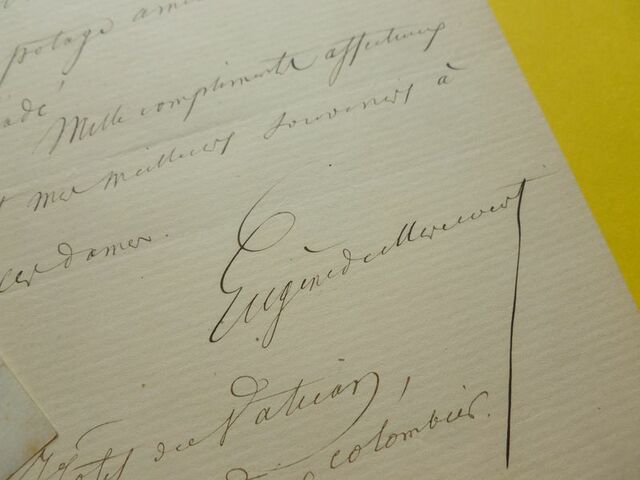 potage ami
Mille compliments affectueux
mes meilleurs souvenirs à
ces dames.
Eugène de Mirecourt
Hôtel du Vatican,
colombier.